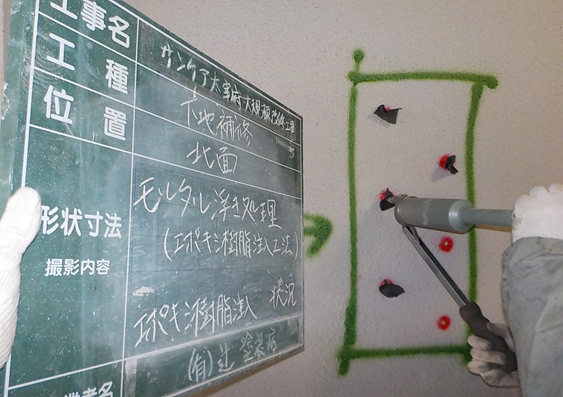 工事名 サンケア太宰府大規模改修工事
工種 下地補修
位置 北面
形状寸法 モルタル浮き処理
(エポキシ樹脂注入工法)
撮影内容
エポキシ樹脂注入 状況
業者名 (有)辻塗装店